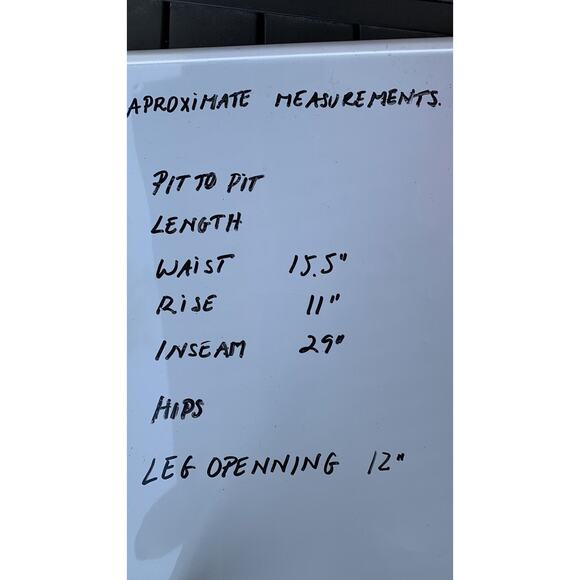 APROXiMATE MEASUREMENTS.
PIT TO PiT
LENGTH
WAiST 15.5"
RiSE 11"
INSEAM 29"
HIPS
LEG OPENNING 12"